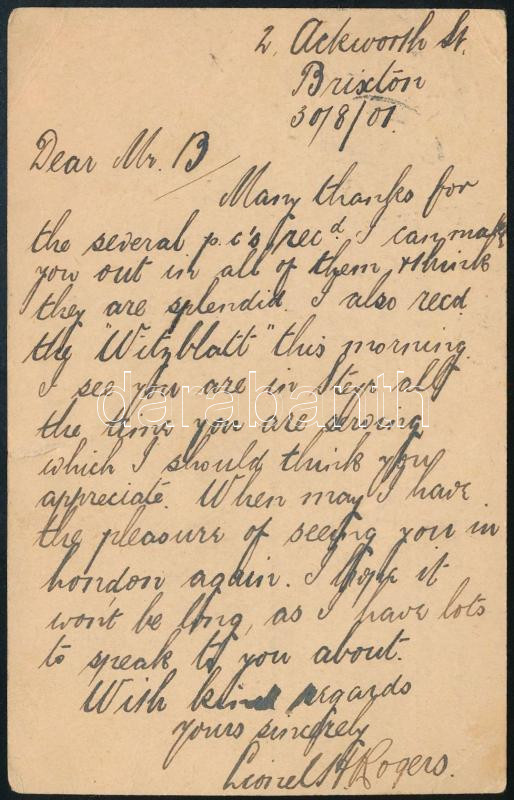 2, Ackworth St.
Brixton
30/8/01.
Dear Mr. B
Many thanks for
the several p.c's rec'd. I can make
you out in all of them & think
they are splendid. I also recd.
the "Witzblatt" this morning.
I see you are in Steyr all
the time you are serving
which I should think you
appreciate. When may I have
the pleasure of seeing you in
London again. I hope it
won't be long, as I have lots
to speak to you about.
With kind regards
Yours sincerely
Lionel H Rogers.
darabanth